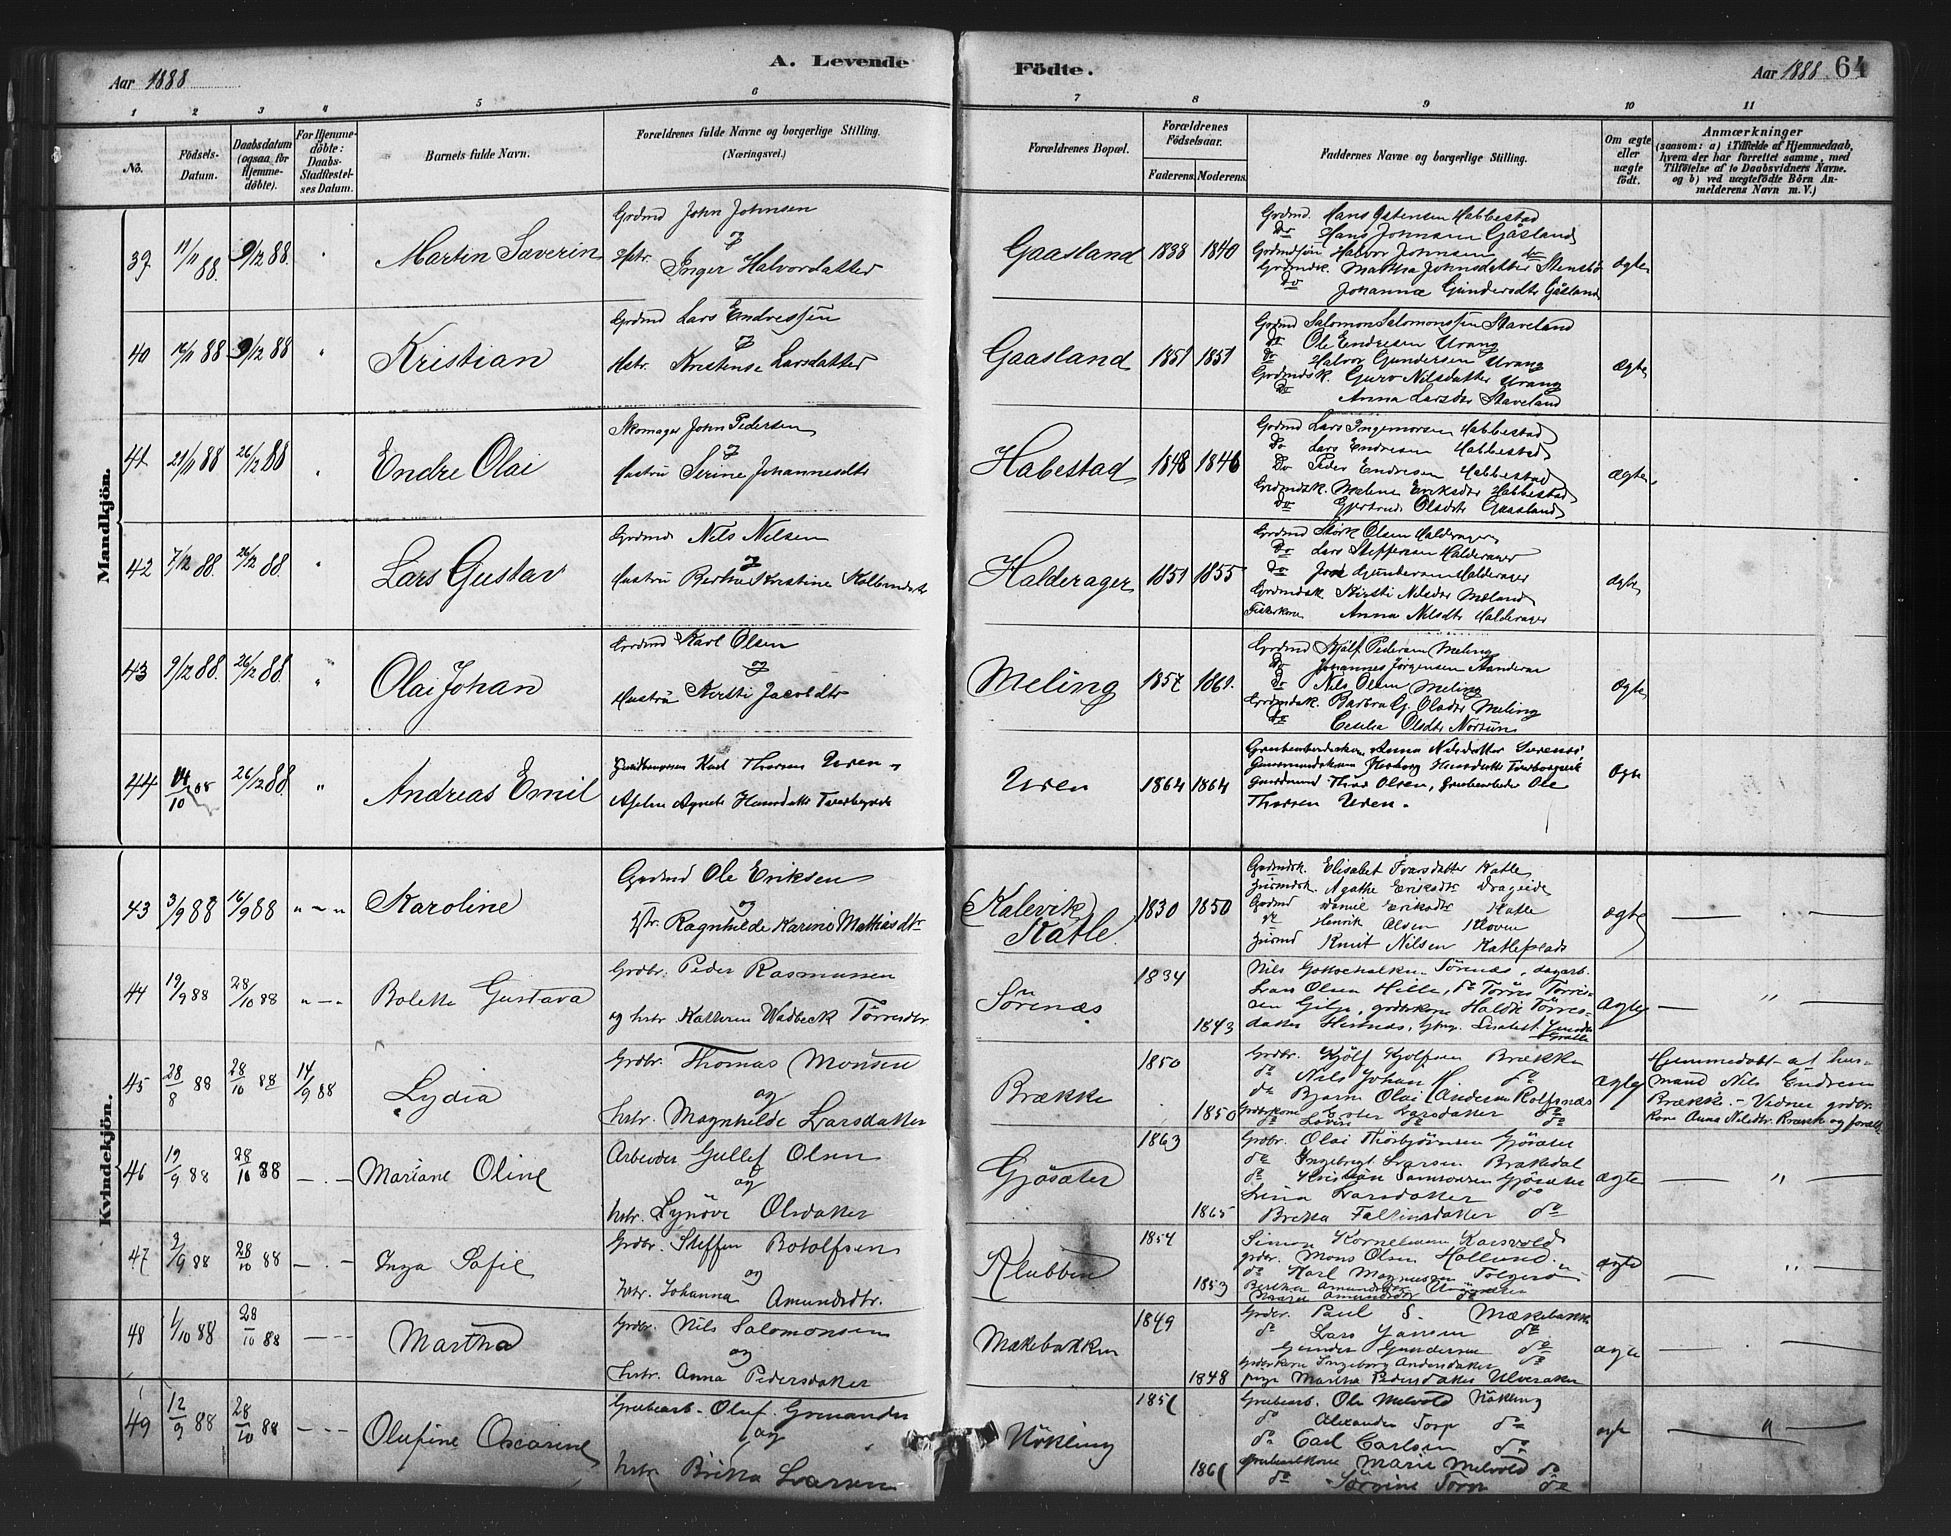 Aar 1888
A. Levende Födte.
Aar 1888. 64
1 2 3 4 5 6 7 8 9 10 11
No.
Födsels-Datum.
Daabsdatum (ogsaa for Hjemme-döbte).
For Hjemme-döbte: Daabs-Stadfæstel-ses Datum.
Barnets fulde Navn.
Forældrenes fulde Navne og borgerlige Stilling. (Næringsvei.)
Forældrenes Bopæl.
Forældrenes Födselsaar.
Faderens. Moderens.
Faddernes Navne og borgerlige Stilling.
Om ægte eller uægte födt.
Anmærkninger
(saasom: a) i Tilfælde af Hjemmedaab,
hvem der har forrettet samme, med
Tilföielse af to Daabsvidners Navne.
og b) ved uægtefödte Börn An-
melderens Navn m. V.)
Mandkjön.
39 11/11 88. 9/12 88. Martin Severin
Grdmd John Johnsen
og
Hstr. Inger Halvorsdatter
Gaasland 1838 1840
Grdmd. Hans Ostensen Habbestad
Do Hans Johnsen Gåsland
Grdmdsön Halvor Johnsen do
Grdmdsk. Martha Johnsdatter Stensbö
Do Johanna Gundersdtr Gåsland
ægte
40 88 9/12 88 " Kristian
Grdmd Lars Endressen
og
Hstr. Kristense Larsdatter
Gaasland 1851 1851
Grdmd Salomon Salomonsen Staveland
Do Ole Endresen Urang
Do Halvor Gundersen Urang
Grdmdsk. Guro Nilsdatter Urang
Do Anna Larsdtr Staveland
ægte
41 21/11 88 26/12 88 Endre Olai
Skomager John Pedersen
og
Hustru Serine Johannesdtr
Habestad 1848 1846
Grdmd Lars Ingemorsen Habbestad
Do Lars Endresen Habbestad
Do Peder Endresen Habbestad
Grdmdsk. Melene Eriksdtr Habbestad
Do Gjertrud Olsdtr Gaasland
ægte
42 7/12 88. 26/12 88. " Lars Gustav
Grdmd Nils Nilsen
og
Hustru Berthe Kristine
Halderager 1851 1855
Grdmd Störk Olsen Halderager
Do Lars Steffensen Halderager
Do Gundersen Halderager
Grdmdsk. Kirsti Nilsdtr Mæland
Anna Nilsdtr Halderager
ægte
43 9/12 88. 26/12 88 " Olai Johan
Grdmd Karl Olsen
og
Hustru Kirsti Jacobdtr
Meling 1857 1861.
Grdmd Kjölf Pedersen Meling
Do Johannes Jörgensen
Do Nils Olsen Meling
Grdmdsk. Barbra G. Olsdtr Meling
Do Cecilia Olsdtr Nortun
ægte
44 14/10 88 26/12 88. " Andreas Emil
Karl Thorsen Uren
Agnete
Uren 1864 1864
Anna Nilsdatter
Thor Olsen, Ole
Thorsen Uren.
ægte
Kvindekjön.
43 3/9 88 16/9 88 " — " Karoline
Grdmd Ole Eriksen
og
Hstr. Ragnhilde Karine Mathiasdtr
(Kalevik) Katle. 1830 1850
Grdmdsk. Elisabet Ivarsdatter Katle
Husmdsk. Agathe Eriksdtr Drageide
Grdmd Daniel Katle
do Henrik Olsen Kloven
Husmd Knut Nilsen Katleplads
ægte — . —
44 19/9 88 28/10 88 " — " Bolette Gustava
Grdbr. Peder Rasmussen
og hstr. Kathrine Wadbeck Törresdtr.
Sörenæs 1834 1843
Nils Sörenæs, dagarb.
Lars Olsen Hille, do Törres Törris-
sen Gilje,
ægte — " —
45 28/8 88 28/10 88 14/9 88 Lydia
Grdbr. Thomas Monsen
og
hstr. Magnhilde Larsdatter
Brække 1850 1850
Grdbr. Kjölf Kjolfsen Brække
do Nils Johan H. do
do Bjarne Olai Andersen Rolfsnæs
Grdbrkone Ester Larsdatter do
do Lovise do do
ægte
Hjemmedöbt af hus-
mand Nils Endresen
Brække. - Vidner grdbr.
kone Anna Nilsdtr. Brække og
46 19/9 88 28/10 88 — . — Mariane Oline
Arbeider Gullef Olsen
og
hstr. Synöve Olsdatter
Gjösæter 1863 1865
Grdbr. Olai Thorbjörnsen Gjösæter
do Ingebrigt Larsen Brakedal
do Kristian Samsonsen Gjösæter
Lina Larsdatter do
Britta Faltinsdatter do
ægte — " —
47 2/9 88 28/10 88 — . — Inga Sofie
Grdbr. Steffen Botolfsen
og
hstr. Johanna Amundsdtr.
Klubben 1854 1853
Simon Kornelius
grdbr. Mons Olsen Hollund
do Karl Magnussen Tolgerö
Bertha Amundsdtr
ægte — " —
48 1/10 88 28/10 88 — — — Martha
Grdbr. Nils Salomonsen
og
hstr. Anna Pedersdatter
Mækebakken 1849 1848
Grdbr. Paul S. Mækebakke
do Lars Jansen do
Gunder Gundersen do
Grdbrkone Ingeborg Andersdatter do
pige Martha Pedersdatter Ulveraker
ægte — . —
49 12/9 88 28/10 88 — — - Olufine Oscarine
Grubearb. Oluf
og
hstr. Britta Larsen
Nökling
Grubearb. Ole Melvold Nökling
do Alexander Torp do
do Carl Carlsen do
Grubearbkone Marie Melvold do
do Sörine Torp do
ægte — " —